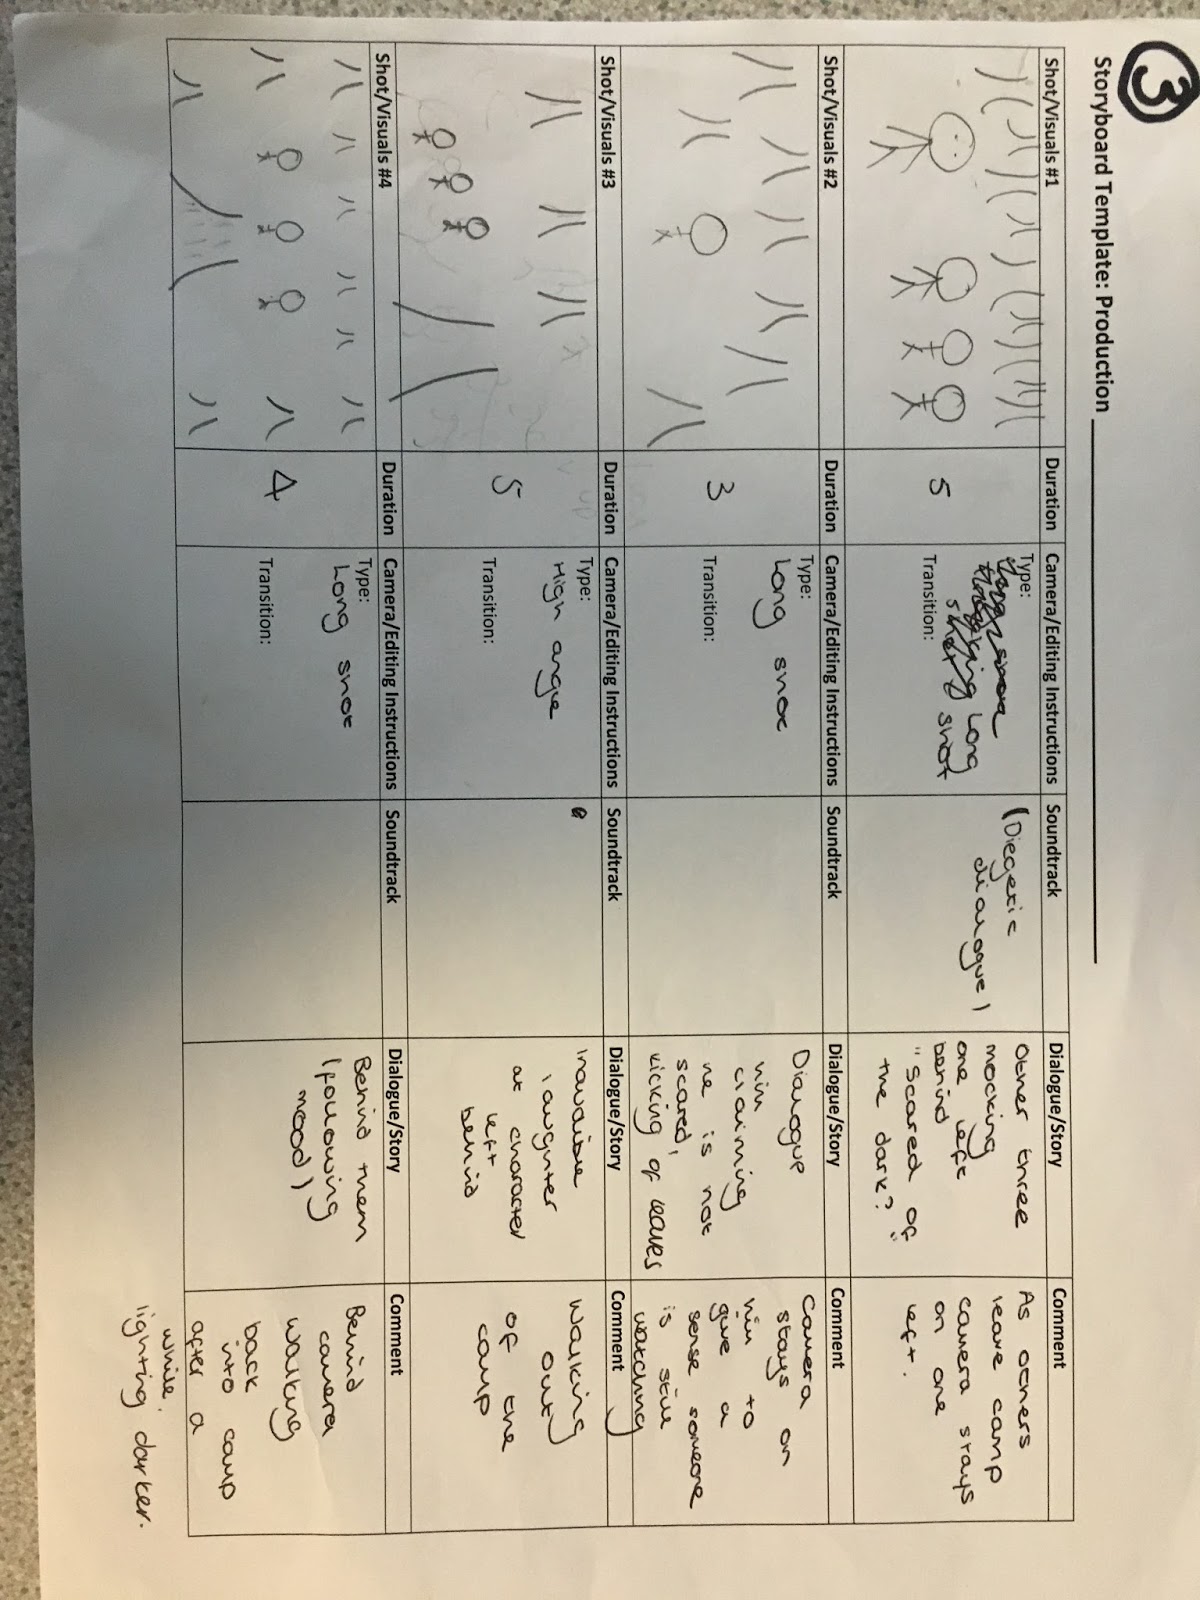 3
Storyboard Template: Production
Shot/Visuals #1
Duration
Camera/Editing Instructions
Soundtrack
Dialogue/Story
Comment
5
Type:
Long
shot
Transition:
(Diegetic
dialogue)
Other three
mocking
one left
behind
"Scared of
the dark?"
As others
leave camp
camera stays
on one
left.
Shot/Visuals #2
Duration
Camera/Editing Instructions
Soundtrack
Dialogue/Story
Comment
3
Type:
Long shot
Transition:
Dialogue
him
claiming
he is not
scared,
kicking of leaves
Camera
stays on
him to
give a
sense someone
is still
watching
Shot/Visuals #3
Duration
Camera/Editing Instructions
Soundtrack
Dialogue/Story
Comment
5
Type:
High angle
Transition:
Inaudible
laughter
at character
left
behind
Walking
out
of the
camp
Shot/Visuals #4
Duration
Camera/Editing Instructions
Soundtrack
Dialogue/Story
Comment
4
Type:
Long shot
Transition:
Behind them
(following
mood)
Behind
camera
walking
back
into camp
after a
while,
lighting darker.